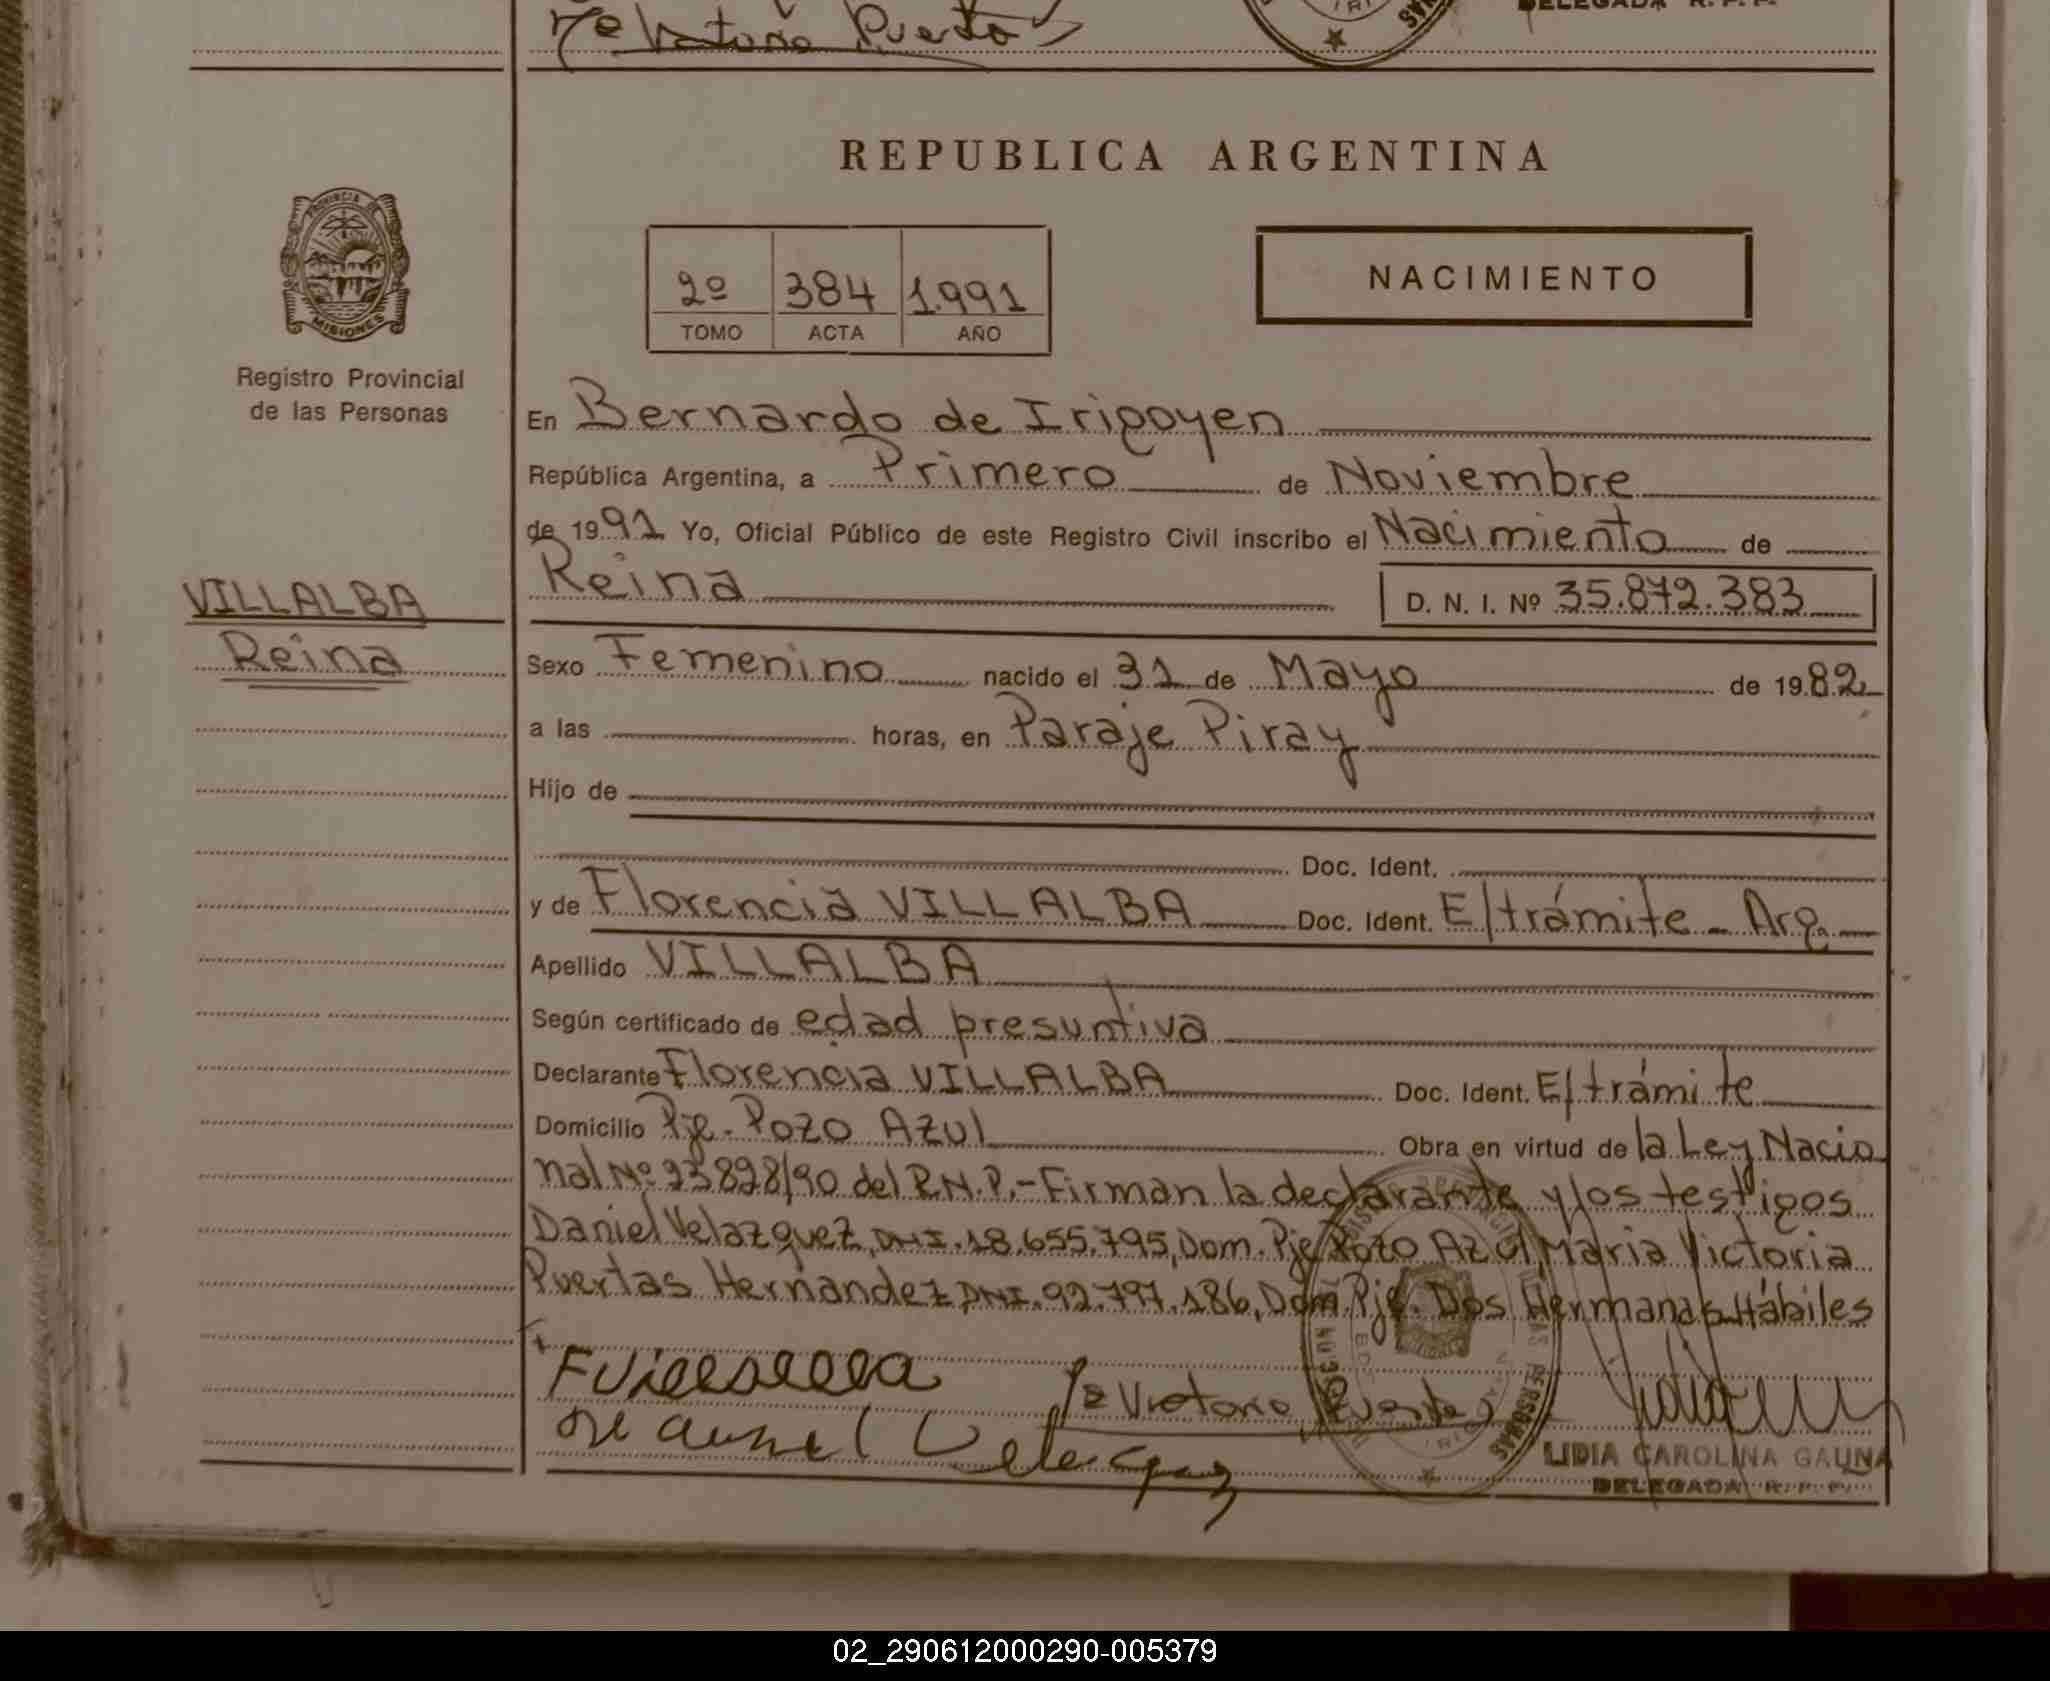 Puertas
DELEGADA R. P. P.
REPUBLICA ARGENTINA
PROVINCIA DE
MISIONES
Registro Provincial
de las Personas
2º 384 1.991
TOMO ACTA AÑO
NACIMIENTO
En Bernardo de Irigoyen
República Argentina, a Primero de Noviembre
de 1991 Yo, Oficial Público de este Registro Civil inscribo el Nacimiento de
Reina D. N. I. Nº 35.872.383
VILLALBA
Reina
Sexo Femenino nacido el 31 de Mayo de 1982
a las horas, en Paraje Piray
Hijo de
Doc. Ident.
y de Florencia VILLALBA Doc. Ident. E/trámite - Arg.
Apellido VILLALBA
Según certificado de edad presuntiva
Declarante Florencia VILLALBA Doc. Ident. E/trámite
Domicilio Pje. Pozo Azul Obra en virtud de la Ley Nacio
nal Nº 23828/90 del R.N.P.- Firman la declarante y los testigos
Daniel Velazquez, DNI. 18.655.795, Dom. Pje Pozo Azul María Victoria
Puertas Hernandez, DNI. 92.797.186, Dom. Pje. Dos Hermanas Hábiles
Mª Victoria Puertas
LIDIA CAROLINA GAUNA
DELEGADA R. P. P.
02_290612000290-005379